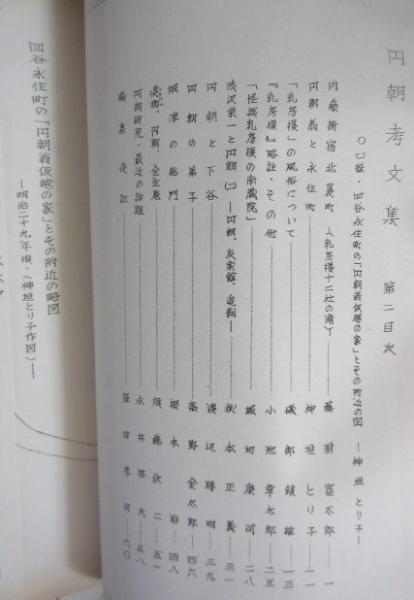 円朝考文集 第二目次
〇口絵・四谷永住町の「円朝翁仮寓の家」とその附近の図 ―神垣とり子―
内藤新宿北裏町(乳房榎十二社の滝) 富太郎 一
円朝翁と永住町 神垣とり子 一一
「乳房榎」の風俗について 磯部鎮雄 一三
『乳房榎』略註・その他 小池章太郎 二五
「怪談乳房榎の南蔵院」 康司 二八
渋沢栄一と円朝(二)―円朝、友楽館、追駒― 松本正義 三一
円朝と下谷 渡辺勝明 三九
円朝の弟子 高野金太郎 四六
根津の総門 根本 四八
円朝、全生庵 須藤欣二 五一
円朝研究・最近の話題 永井啓夫 五八
後記 窪田孝司 六〇
四谷永住町の「円朝翁仮寓の家」とその附近の略図
―明治二十九年頃・(神垣とり子作図)―